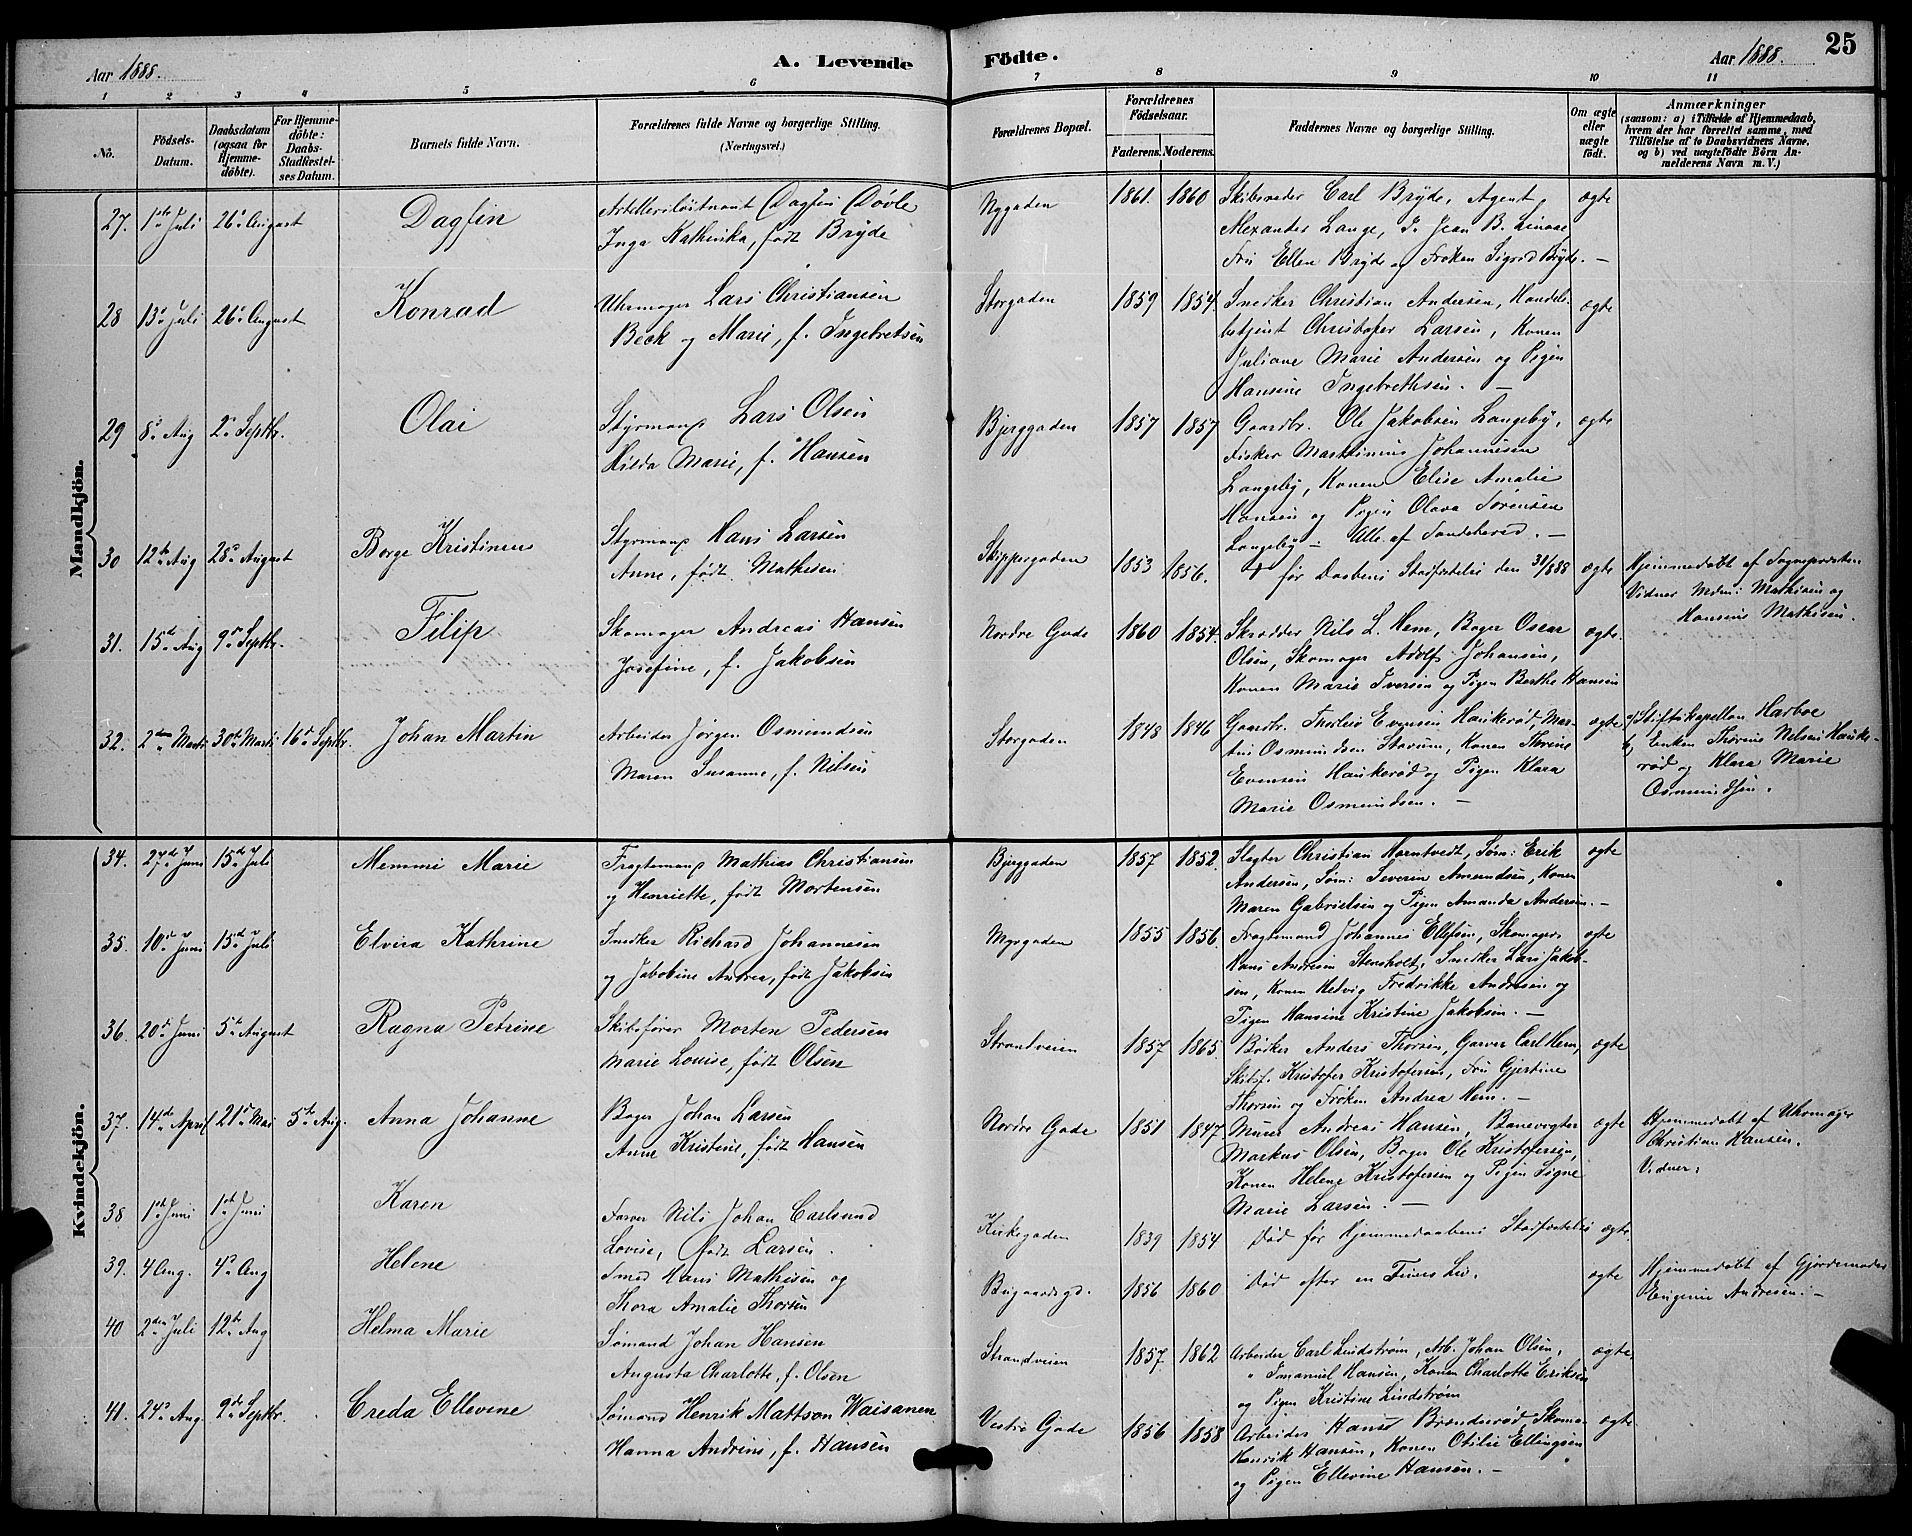 Aar 1888.
A. Levende
Födte.
Aar 1888.
25
1 2 3 4 5 6 7 8 9 10 11
No.
Födsels-
Datum.
Daabsdatum
(ogsaa for
Hjemme-
döbte).
For Hjemme-
döbte:
Daabs-
Stadfæstel-
ses Datum.
Barnets fulde Navn.
Forældrenes fulde Navne og borgerlige Stilling.
(Næringsvei.)
Forældrenes Bopæl.
Forældrenes
Födselsaar.
Faderens. Moderens.
Faddernes Navne og borgerlige Stilling.
Om ægte
eller
uægte
födt.
Anmærkninger
(saasom: a) i Tilfælde af Hjemmedaab,
hvem der har forrettet samme, med
Tilföielse af to Daabsvidners Navne,
og b) ved uægtefödte Börn An-
melderens Navn m. V.)
Mandkjön.
27. 1ste Juli 26de August Dagfin
Artilleriløitnant Dagfin Døvle
Inga Kathinka, født Bryde
Nygaden 1861. 1860
Skibsreder Carl Bryde, Agent
Alexander Lange, Jean B. Linaae
Fru Ellen Bryde og Frøken Sigrid Bryde. —
ægte
28 13de Juli 26de August Konrad
Uhrmager Lars Christiansen
Beck og Marie, f. Ingebretsen
Storgaden 1859 1854.
Snedker Christian Andersen, Handels-
betjent Christofer Larsen, Konen
Juliane Marie Andersen og Pigen
Hansine Ingebrethsen. —
ægte
29 8de Aug 2den Septbr. Olai
Styrmand Lars Olsen
Hilda Marie, f. Hansen
Bjerggaden 1857 1857
Gaardbr. Ole Jakobsen Langeby,
Fisker Marthinius Johannesen
Langeby, Konen Elise Amalie
Hansen og Pigen Olava Sørensen
Langeby — Alle af Sandeherred. —
ægte
30 12te Aug 28de August Borge Kristinen
Styrmand Hans Larsen
Anne, født Mathisen
Skippergaden 1853 1856.
† før Daabens Stadfæstelse den 31/8 88
ægte
Hjemmedøbt af Sognepresten
Vidner Mdm: Mathisen og
Hansine Mathisen.
31. 15de Aug 9de Septbr. Filip
Skomager Andreas Hansen
Josefine, f. Jakobsen
Nordre Gade 1860 1854.
Skrædder Nils L. Hem, Bager Oscar
Olsen, Skomager Adolf Johansen,
Konen Marie Iversen og Pigen Berthe Hansen
ægte.
32. 2den Marts 30te Marts 16de Septbr. Johan Martin
Arbeider Jørgen Osmundsen
Maren Susanne, f. Nilsen
Storgaden 1848 1846
Gaardbr. Thorløv Evensen Haukerød, Mar-
tin Osmundsen Storum, Konen Thorine
Evensen Haukerød og Pigen Klara
Marie Osmundsen. —
ægte
a) Stiftskapellan Harboe
b) Enken Thorine Nilsen Hauke-
rød og Klara Marie
Osmundsen.
Kvindekjön.
34. 27de Juni 15de Juli Memmi Marie
Fragtemand Mathias Christiansen
og Henriette, født Mortensen
Bjerggaden 1857 1852.
Slagter Christian Hamtvedt, Søm: Erik
Andersen, Søm: Severin Amundsen, Konen
Maren Gabrielsen og Pigen Amanda Andersen. —
ægte
35. 10de Juni 15de Juli Elvira Kathrine
Snedker Richard Johannesen
og Jakobine Andrea, født Jakobsen
Myrgaden 1855 1856.
Fragtemand Johannes Ellefsen, Skomager
Hans Andresen Stensholt, Snedker Lars Jakob-
sen, Konen Hedvig Fredrikke Andresen og
Pigen Hansine Kristine Jakobsen. —
ægte
36. 20de Juni 5te August Ragna Petrine
Skibsfører Morten Pedersen
Marie Louise, født Olsen
Strandveien 1857 1865.
Bødker Anders Thorsen, Garver Carl Hem,
Skibsf. Kristofer Kristofersen, Fru Gjertine
Thorsen og Frøken Andrea Hem. —
ægte
37. 14de April 21de Mai 5te Aug. Anna Johanne
Bager Johan Larsen
Anne Kristine, født Hansen
Nordre Gade 1851 1847
Murer Andreas Hansen, Banevogter
Markus Olsen, Bager Ole Kristofersen,
Konen Helene Kristofersen og Pigen Signe
Marie Larsen. —
ægte
Hjemmedøbt af Uhrmager
Christian Hansen.
Vidner:
38 1ste Juni 1ste Juni Karen
Farver Nils Johan Carlsund
Lovise, født Larsen.
Kirkegaden 1839 1854
Død før Hjemmedaabens Stadfæstelse
ægte.
39. 4 Aug. 4de Aug Helene
Smed Hans Mathisen og
Thora Amalie Thorsen
Bugaardsgd. 1856 1860
Død efter en Times Liv.
ægte
Hjemmedøbt af Gjordemoder
Eugenie Andresen. —
40 2den Juli 12te Aug Helma Marie
Sømand Johan Hansen
Augusta Charlotte, f. Olsen
Strandveien 1857. 1862
Arbeider Carl Lindstrøm, Arb. Johan Olsen,
" Imanuel Hansen, Konen Charlotte Eriksen
og Pigen Kristine Lindstrøm
ægte.
41. 24de Aug 9de Septbr. Creda Ellevine
Sømand Henrik Mattson Waisanen
Hanna Andrine, f. Hansen
Vestre Gade 1856 1858
Arbeider Hans Brønderød, Skoma-
Henrik Hansen, Konen Otilie Ellingsen
og Pigen Ellevine Hansen. —
ægte